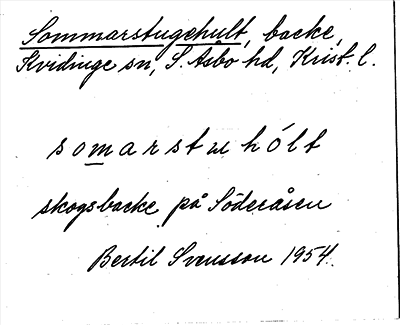 Sommarstugehult, backe,
Kvidinge sn, S. Åsbo hd, Krist. l.
somarstuhólt
skogsbacke på Söderåsen
Bertil Svensson 1954.